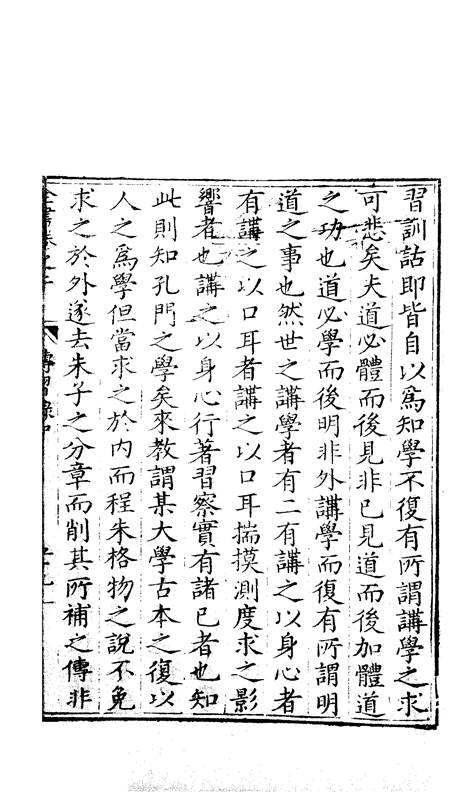 習訓詁即皆自以爲知學不復有所謂講學之求
可悲矣夫道必體而後見非已見道而後加體道
之功也道必學而後明非外講學而復有所謂明
道之事也然世之講學者有二有講之以身心者
有講之以口耳者講之以口耳揣摸測度求之影
響者也講之以身心行著習察實有諸已者也知
此則知孔門之學矣來教謂某大學古本之復以
人之爲學但當求之於内而程朱格物之說不免
求之於外遂去朱子之分章而削其所補之傳非
全書卷之二
傳習錄中